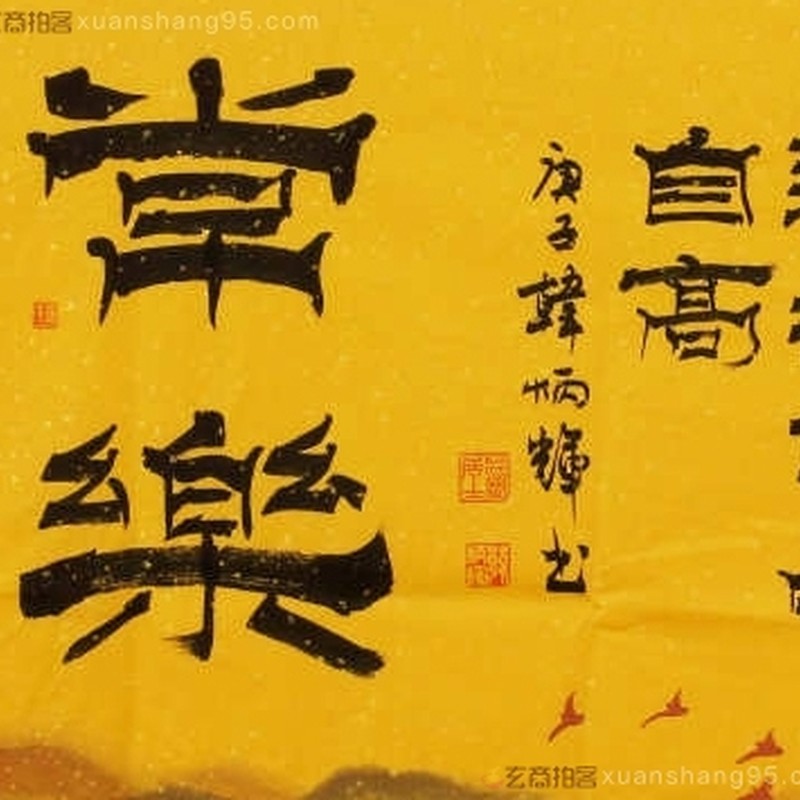 玄商拍客xuanshang95.com
常樂
自高
庚子韓炳輝書
玄商拍客xuanshang95.co